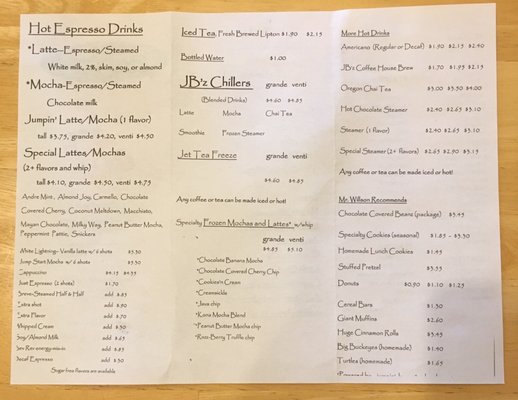 Hot Espresso Drinks
*Latte--Espresso/Steamed
White milk, 2%, skim, soy, or almond
*Mocha-Espresso/Steamed
Chocolate milk
Jumpin' Latte/Mocha (1 flavor)
tall $3.75, grande $4.20, venti $4.50
Special Lattes/Mochas
(2+ flavors and whip)
tall $4.10, grande $4.50, venti $4.75
Andre Mint, Almond Joy, Carmello, Chocolate
Covered Cherry, Coconut Meltdown, Macchiato,
Mayan Chocolate, Milky Way, Peanut Butter Mocha,
Peppermint Pattie, Snickers
White Lightning-- Vanilla latte w/ 6 shots $5.50
Jump Start Mocha w/ 6 shots $5.50
Cappuccino $4.15 $4.35
Just Espresso (2 shots) $1.70
Breve-Steamed Half & Half add $.85
Extra shot add $.90
Extra Flavor add $.70
Whipped Cream add $.50
Soy/Almond Milk add $.65
Rev energy-mix-in add $.85
Decaf Espresso add $.50
Sugar free flavors are available
Iced Tea, Fresh Brewed Lipton $1.90 $2.15
Bottled Water $1.00
JB'z Chillers grande venti
(Blended Drinks) $4.60 $4.85
Latte Mocha Chai Tea
Smoothie Frozen Steamer
Jet Tea Freeze grande venti
$4.60 $4.85
Any coffee or tea can be made iced or hot!
Specialty Frozen Mochas and Lattes* w/whip
grande venti
$4.85 $5.10
*Chocolate Banana Mocha
*Chocolate Covered Cherry Chip
*Cookies'n Cream
*Creamsicle
*Java chip
*Kona Mocha Blend
*Peanut Butter Mocha chip
*Razz-Berry Truffle chip
More Hot Drinks
Americano (Regular or Decaf) $1.90 $2.15 $2.40
JB'z Coffee House Brew $1.70 $1.95 $2.15
Oregon Chai Tea $3.00 $3.50 $4.00
Hot Chocolate Steamer $2.40 $2.65 $3.10
Steamer (1 flavor) $2.40 $2.65 $3.10
Special Steamer (2+ flavors) $2.65 $2.90 $3.15
Any coffee or tea can be made iced or hot!
Mr. Willson Recommends
Chocolate Covered Beans (package) $3.45
Specialty Cookies (seasonal) $1.85 - $3.50
Homemade Lunch Cookies $1.45
Stuffed Pretzel $3.55
Donuts $0.90 $1.10 $1.25
Cereal Bars $1.50
Giant Muffins $2.60
Huge Cinnamon Rolls $3.45
Big Buckeyes (homemade) $1.40
Turtles (homemade) $1.65